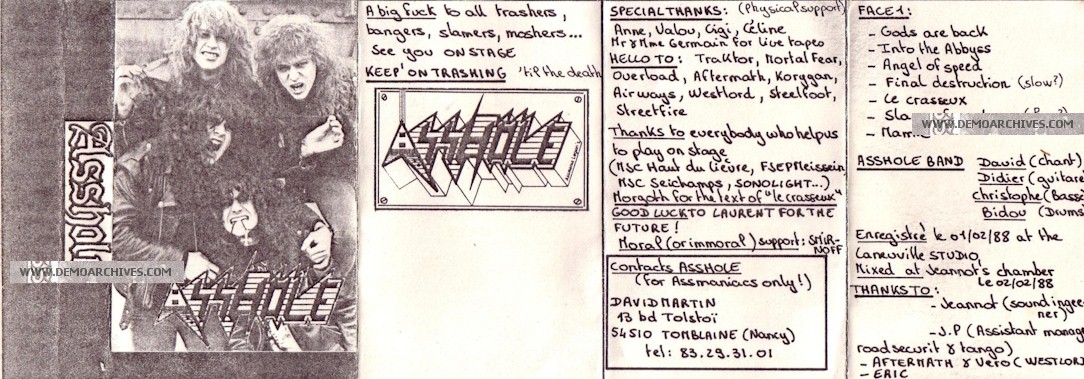 Asshole
ASSHOLE
WWW.DEMOARCHIVES.COM
A big fuck to all trashers,
bangers, slamers, moshers...
See you ON STAGE
KEEP'ON TRASHING 'til the death
ASSHOLE
SPECIAL THANKS: (Physical support)
Anne, Valou, Gigi, Céline
Mr & Mme Germain for live tapes
HELLO TO: Traktor, Mortal Fear,
Overload, Aftermath, Korygan,
Airways, Westlord, Steelfoot,
Streetfire
Thanks to everybody who help us
to play on stage
(MJC Haut du Lièvre, FSEP Messein
MJC Seichamps, SONOLIGHT...)
Morgoth for the text of "le crasseux"
GOOD LUCK TO LAURENT FOR THE
FUTURE!
Moral (or immoral) support: SMIR-
NOFF
Contacts ASSHOLE
(for Assmaniacs only!)
DAVID MARTIN
13 bd Tolstoï
54510 TOMBLAINE (Nancy)
tel: 83.29.31.01
FACE 1:
- Gods are back
- Into the Abbyss
- Angel of speed
- Final destruction (slow?)
- Le crasseux
WWW.DEMOARCHIVES.COM
ASSHOLE BAND David (chant)
Didier (guitare
christophe (Basse
Bidou (Drums
Enregistré le 01/02/88 at the
Laneuville STUDIO
Mixed at Jeannot's chamber
le 02/02/88
THANKS TO:
- Jeannot (sound ingee-
ner)
- J.P (Assistant manag
road securit & tango)
- AFTERMATH & Vero (WESTLORD
- ERIC